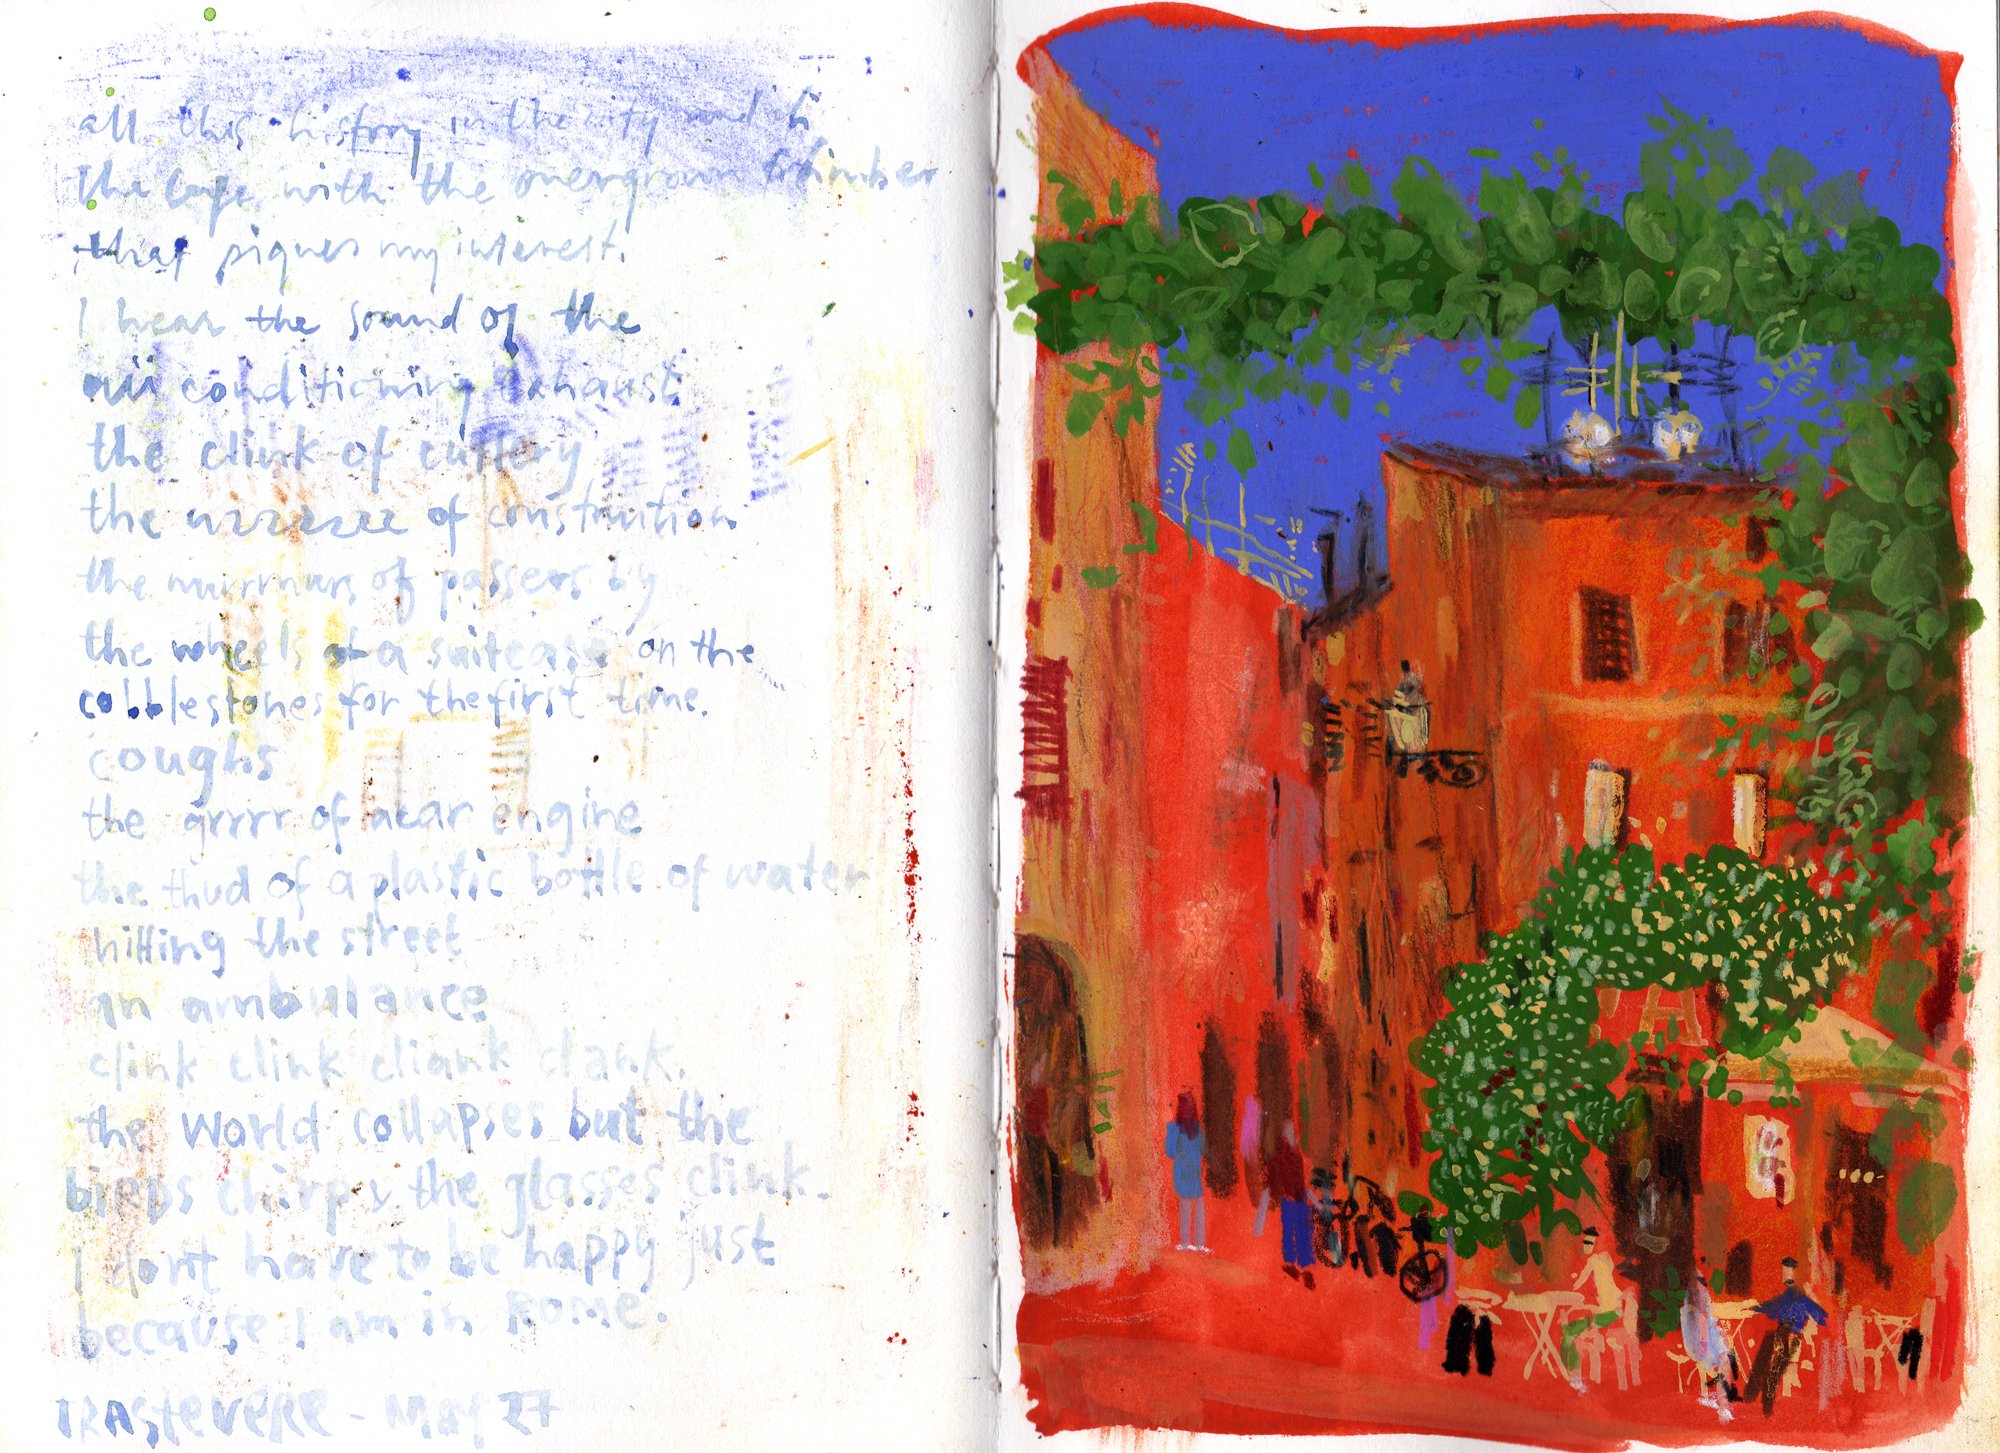 all this history in the city and in
the cafe with the overgrown climber
that piques my interest.
I hear the sound of the
air conditioning exhaust
the clink of cutlery
the wzzzzzz of construction
the murmurs of passers by
the wheels of a suitcase on the
cobblestones for the first time.
coughs
the grrrr of a car engine
the thud of a plastic bottle of water
hitting the street
an ambulance
clink clink cliank clank.
the world collapses but the
birds chirp & the glasses clink.
I don't have to be happy just
because I am in Rome.
TRASTEVERE - May 27